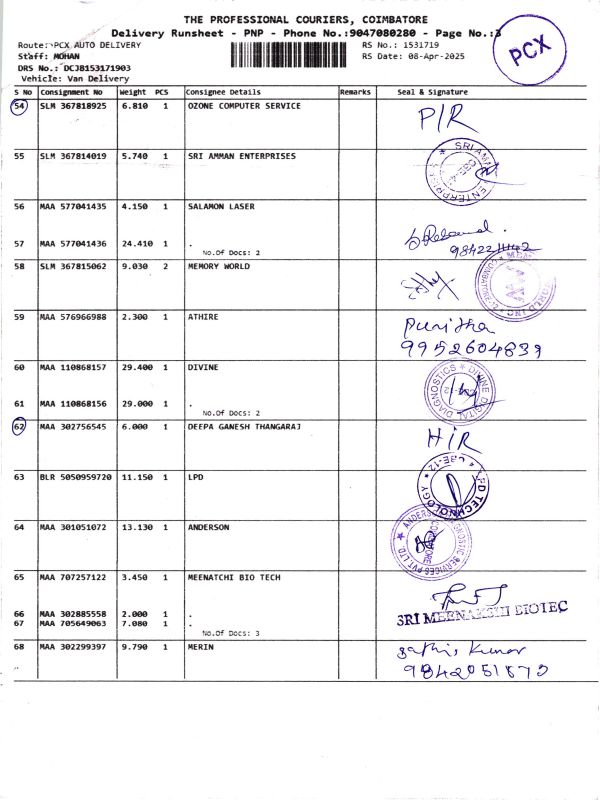 THE PROFESSIONAL COURIERS, COIMBATORE
Delivery Runsheet - PNP - Phone No.:9047080280 - Page No.:3
PCX
Route: PCX AUTO DELIVERY
RS No.: 1531719
Staff: MOHAN
RS Date: 08-Apr-2025
DRS No.: DCJB153171903
Vehicle: Van Delivery
S No Consignment No Weight PCS Consignee Details Remarks Seal & Signature
54 SLM 367818925 6.810 1 OZONE COMPUTER SERVICE P/R
55 SLM 367814019 5.740 1 SRI AMMAN ENTERPRISES
SRI AMMAN ENTERPRISES
56 MAA 577041435 4.150 1 SALAMON LASER
57 MAA 577041436 24.410 1 .
No.Of Docs: 2
58 SLM 367815062 9.030 2 MEMORY WORLD
59 MAA 576966988 2.300 1 ATHIRE Punitha
9952604839
60 MAA 110868157 29.400 1 DIVINE
DIVINE DIGITAL DIAGNOSTICS
61 MAA 110868156 29.000 1 .
No.Of Docs: 2
62 MAA 302756545 6.000 1 DEEPA GANESH THANGARAJ H/R
63 BLR 5050959720 11.150 1 LPD
LPD TECHNOLOGY CBE-12
64 MAA 301051072 13.130 1 ANDERSON
ANDERSON DIAGNOSTIC SERVICES PVT LTD.
65 MAA 707257122 3.450 1 MEENATCHI BIO TECH
66 MAA 302885558 2.000 1 .
SRI MEENAKSHI BIOTEC
67 MAA 705649063 7.080 1 .
No.Of Docs: 3
68 MAA 302299397 9.790 1 MERIN Sathis Kumar